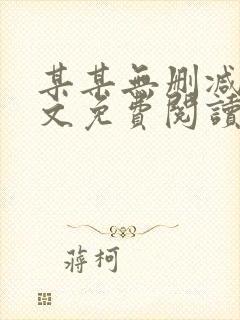 某某無刪減
文免費閱讀
蔣柯